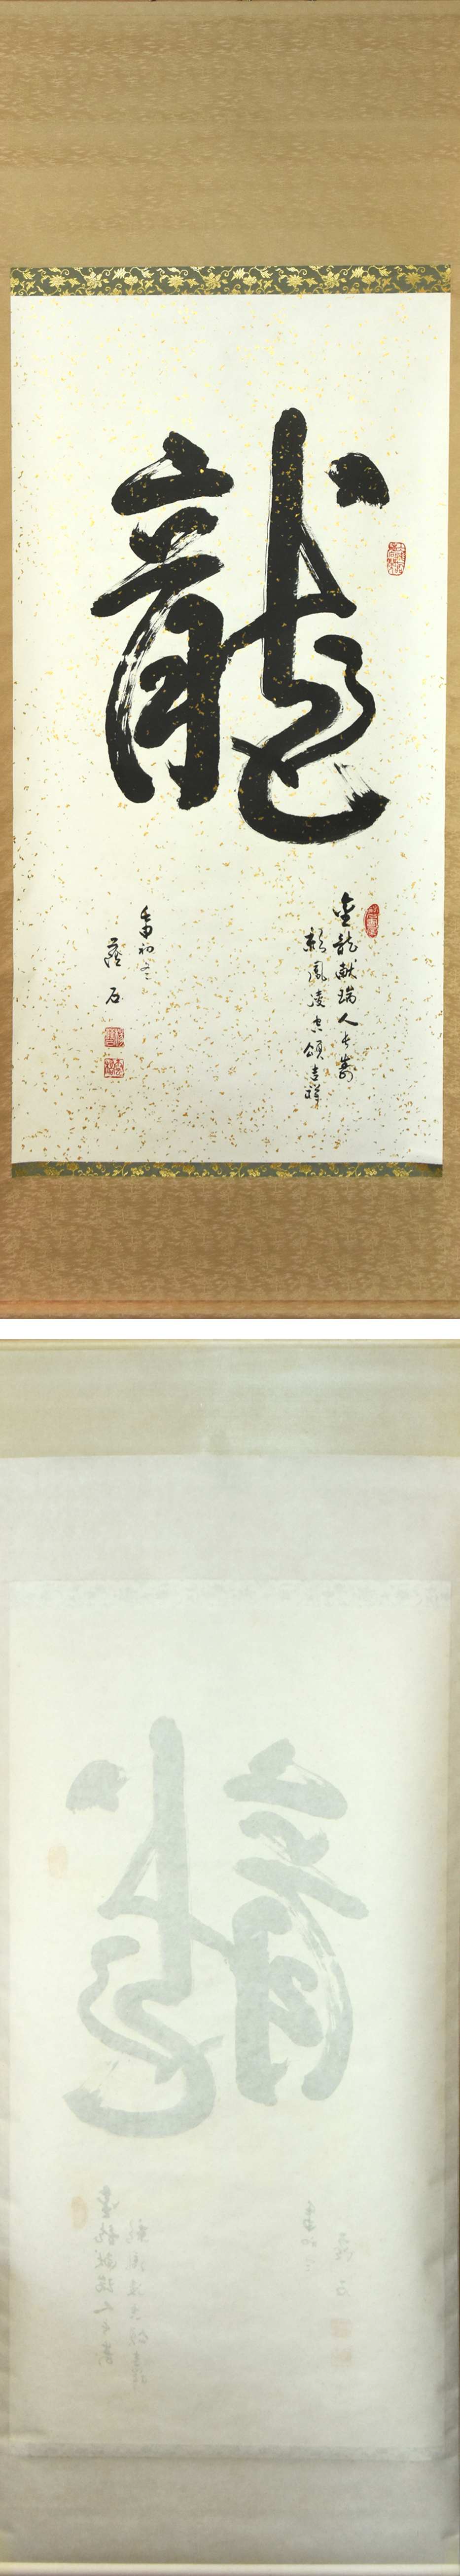 龍
金龍献瑞人長壽
彩鳳凌空頌吉祥
壬申初冬
蔭石